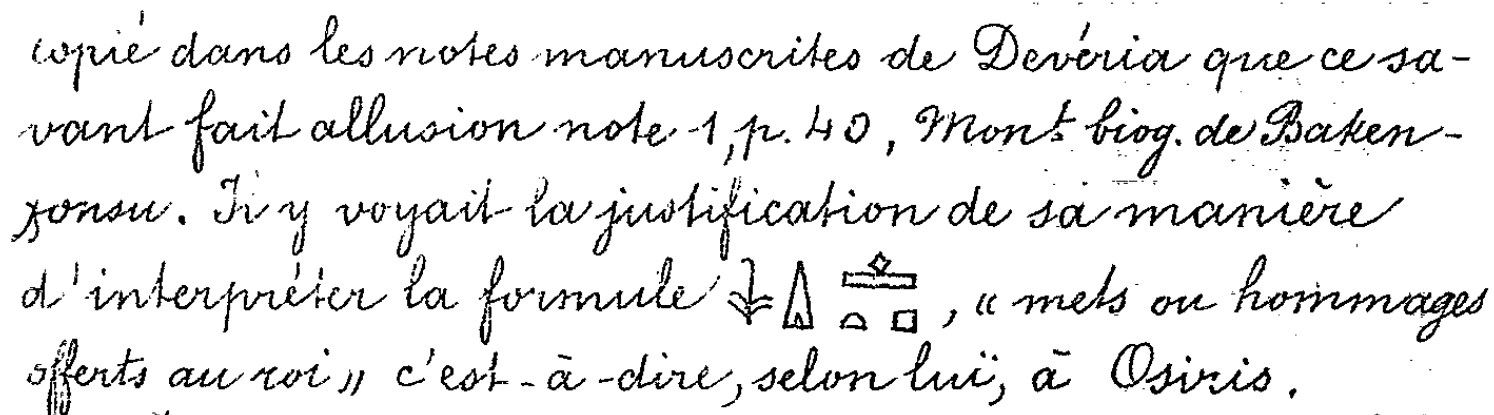 copié dans les notes manuscrites de Devéria que ce sa-
vant fait allusion note 1, p. 40, Mon.t biog. de Baken-
χonsu. Il y voyait la justification de sa manière
d'interpréter la formule 𓇓𓏙𓊵𓏏𓊪, « mets ou hommages
offerts au roi » c'est-à-dire, selon lui, à Osiris.